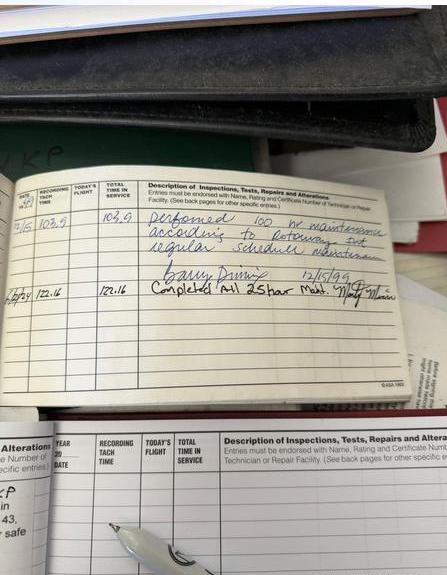 VKP
DATE
RECORDING TACH TIME
TODAY'S FLIGHT
TOTAL TIME IN SERVICE
Description of Inspections, Tests, Repairs and Alterations
Entries must be endorsed with Name, Rating and Certificate Number of Technician or Repair
Facility. (See back pages for other specific entries.)
12/15 103.9 103.9 Performed 100 hr maintenance
according to Rotorway Int
regular schedule maintenance
Barry 12/15/99
122.16 122.16 Completed All 25 hour Maint.
©ASA 1993
Alterations
e Number of
ecific entries.)
YEAR
20
DATE
RECORDING TACH TIME
TODAY'S FLIGHT
TOTAL TIME IN SERVICE
Description of Inspections, Tests, Repairs and Altera
Entries must be endorsed with Name, Rating and Certificate Numb
Technician or Repair Facility. (See back pages for other specific e
KP
in
43,
safe